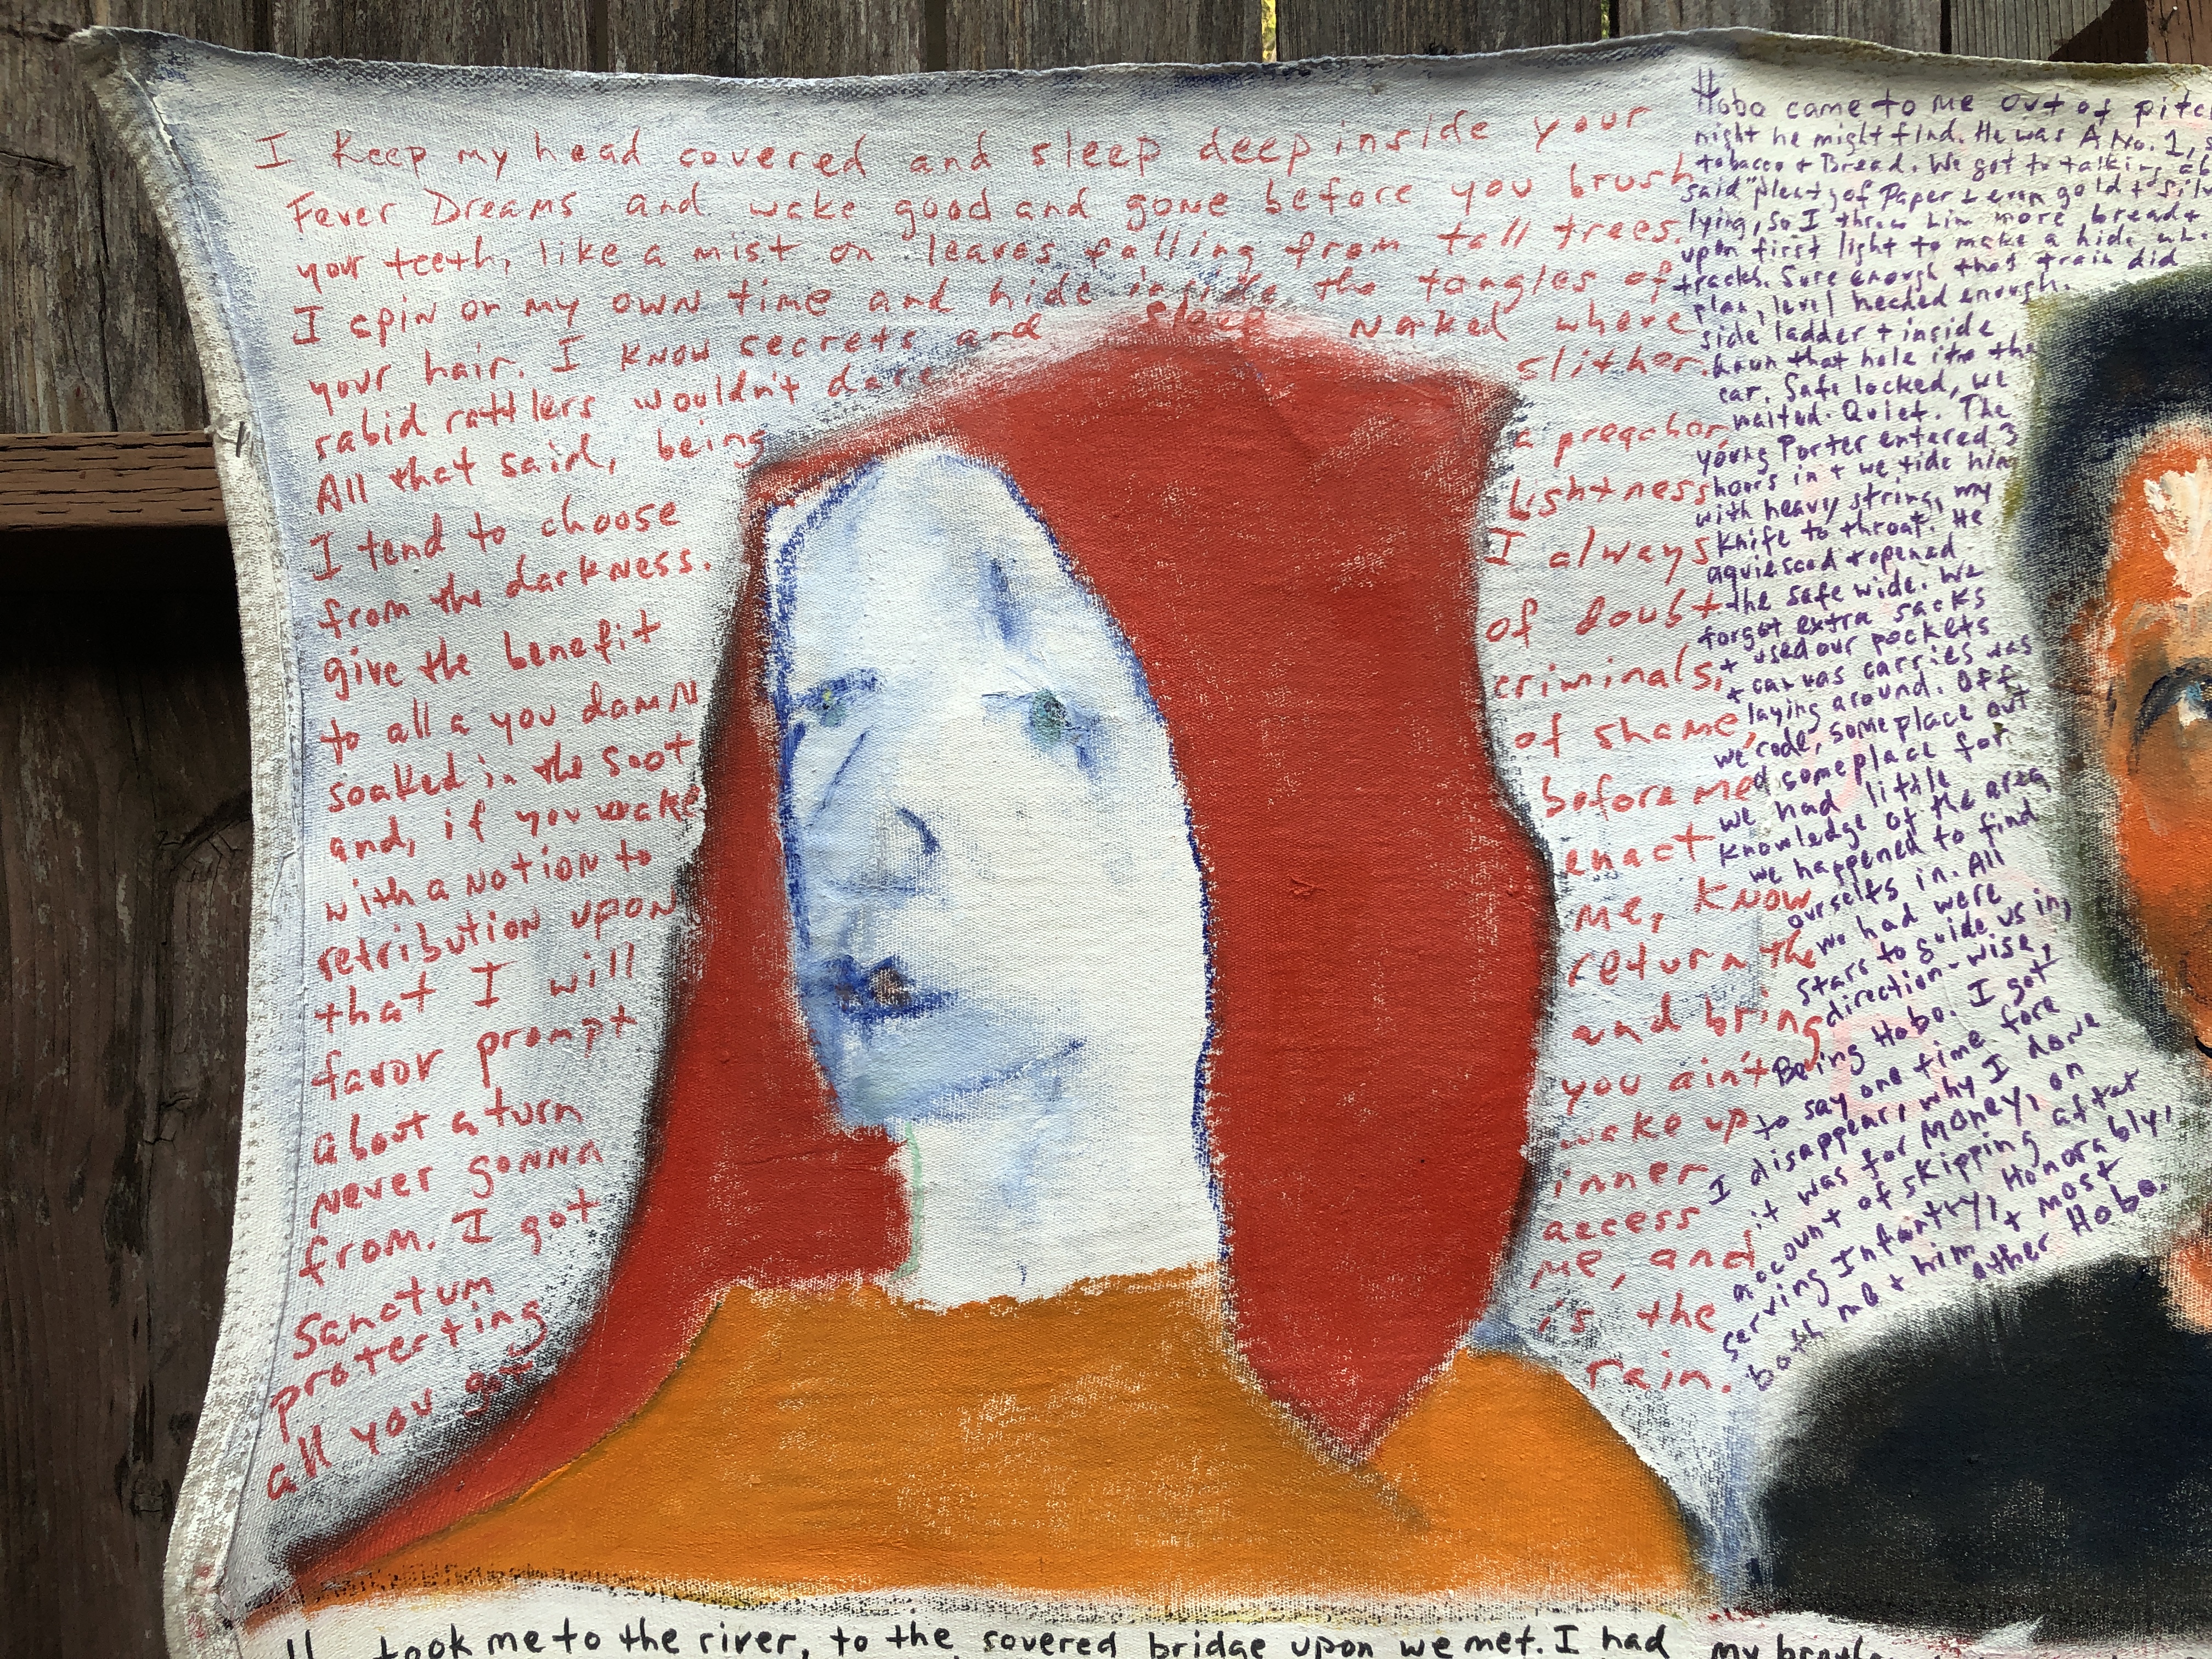 I Keep my head covered and sleep deep inside your
Fever Dreams and wake good and gone before you brush
your teeth, like a mist on leaves falling from tall trees.
I spin on my own time and hide inside the tangles of
your hair. I know secrets and sleep naked where
rabid rattlers wouldn't dare slither.
All that said, being a preacher,
I tend to choose lightness
from the darkness. I always
give the benefit of doubt
to all a you damn criminals,
soaked in the soot of shame,
and, if you wake before me
with a notion to enact
retribution upon me, know
that I will return the
favor prompt and bring
about a turn you ain't
never gonna wake up
from. I got inner
Sanctum access
protecting me, and
all you got is the
rain.
Hobo came to me out of
night he might find. He was A No. 1,
tobacco + Bread. We got to talking
said "plenty of Paper + even gold +
lying, so I threw him more bread +
upon first light to make a hide
tracks. Sure enough that train did
plan, level headed enough.
side ladder + inside
hewn that hole into the
car. Safe locked, we
waited. Quiet. The
young Porter entered 3
hours in + we tide him
with heavy string, my
knife to throat. He
aquiesced + opened
the safe wide. We
forgot extra sacks
+ used our pockets
+ canvas carries was
laying around. Off
we rode, someplace out
of someplace for
we had little
knowledge of the area
we happened to find
ourselfs in. All
we had were
stars to guide us in,
direction-wise,
Being Hobo. I got
to say one time fore
I disappear, why I done
it was for Money, on
account of skipping after
serving Infantry, Honorably,
both me + him + most
other Hobo.
took me to the river, to the covered bridge upon we met. I had my